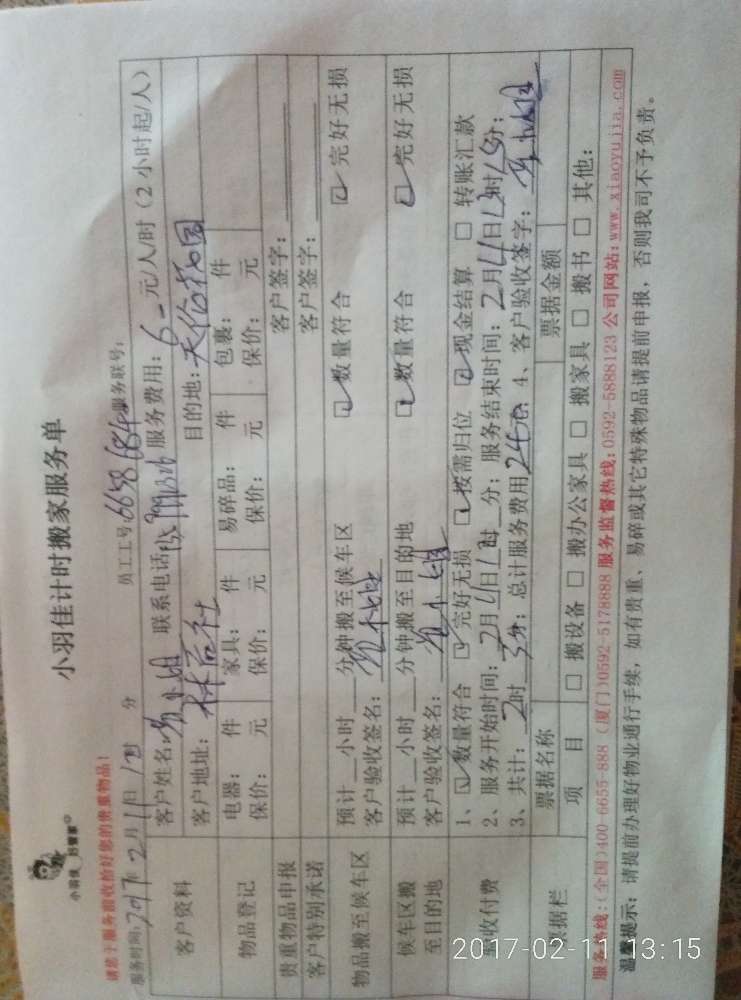 小羽佳 好管家
小羽佳计时搬家服务单
请您于服务前收拾好您的贵重物品！
服务时间：2017年2月11日 分 员工工号：6658 684 服务联号：
客户资料
客户姓名： 小姐 联系电话 服务费用：6 元/人/时（2小时起/人）
客户地址：林后社 目的地：天伦花园
物品登记
电器： 件 家具： 件 易碎品： 件 包裹： 件
保价： 元 保价： 元 保价： 元 保价： 元
贵重物品申报 客户签字：
客户特别承诺 客户签字：
物品搬至候车区
预计 小时 分钟搬至候车区 ☑数量符合 ☑完好无损
客户验收签名：
候车区搬至目的地
预计 小时 分钟搬至目的地 ☑数量符合 ☑完好无损
客户验收签名：
验收付费
1、☑数量符合 ☑完好无损 ☑按需归位 ☑现金结算 □转账汇款
2、服务开始时间：2月 日 时 分；服务结束时间：2月 日13时15分；
3、共计：2时 分；总计服务费用 4、客户验收签字：
票据栏
票据名称 票据金额
项 目 □搬设备 □搬办公家具 □搬家具 □搬书 □其他：
服务热线：(全国)400-6655-888 (厦门)0592-5178888 服务监督热线：0592-5888123 公司网站：www.xiaoyujia.com
温馨提示：请提前办理好物业通行手续，如有贵重、易碎或其它特殊物品请提前申报，否则我司不予负责。
2017-02-11 13:15